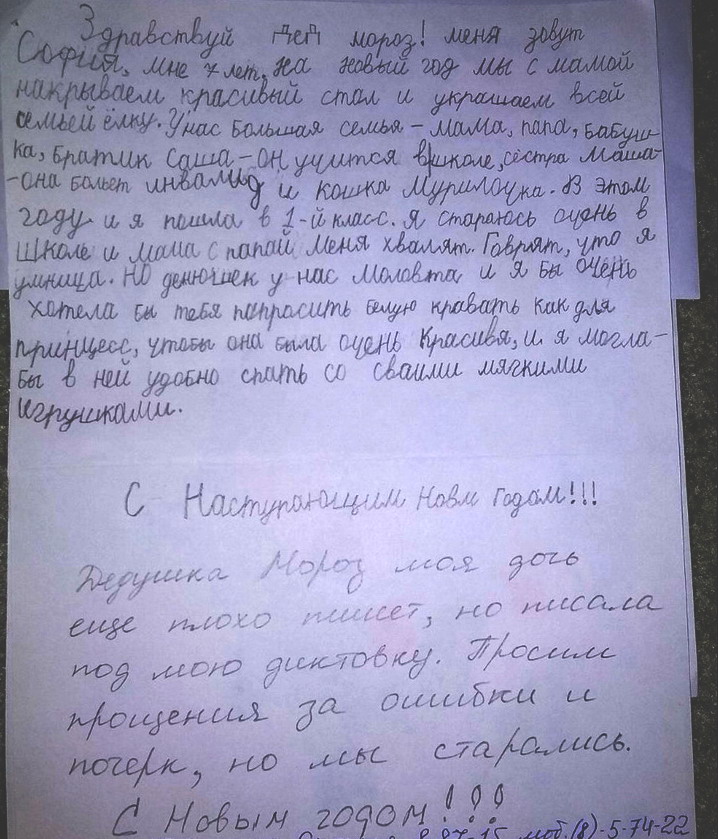 Здравствуй Дед мороз! меня зовут
София, мне 7 лет, На новый год мы с мамой
накрываем красивый стол и украшаем всей
семьей ёлку. У нас большая семья - мама, папа, бабуш-
ка, братик Саша - он учится в школе, сестра Маша -
- она бальет инвалид и кошка Мурилочка. В этом
году и я пошла в 1-й класс. Я стараюсь очень в
школе и мама с папай меня хвалят. Говрят, что я
умница. Но денюшек у нас маловта и я бы очень
хотела бы тебя папросить белую кравать как для
принцесс, чтобы она была очень красивя, и я могла-
бы в ней удобно спать со сваими мягкими
игрушками.
С Наступающим Новм Годом!!!
Дедушка Мороз моя дочь
еще плохо пишет, но писала
под мою диктовку. Просим
прощения за ошибки и
почерк, но мы старались.
С Новым годом!!!
моб.(8)-5-74-22